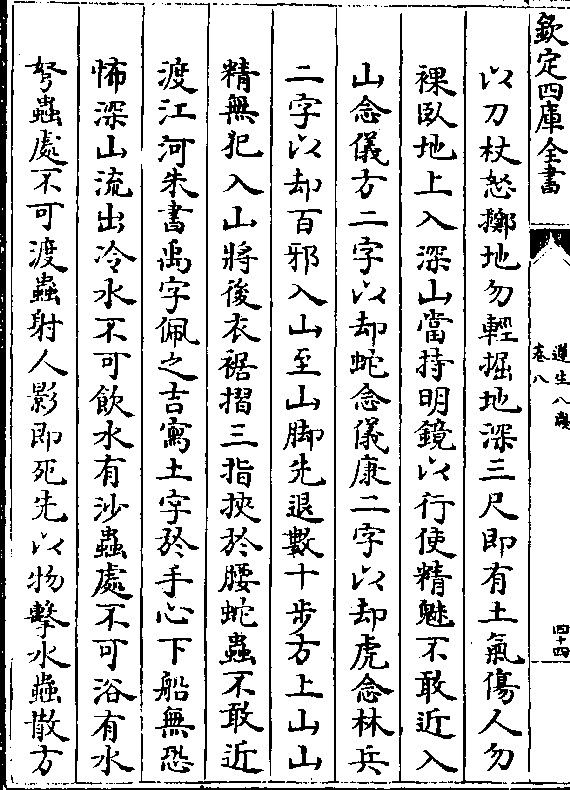 欽定四庫全書
遵生八牋
卷八
四十四
以刀杖怒擲地勿輕掘地深三尺即有土氣傷人勿
裸臥地上入深山當持明鏡以行使精魅不敢近入
山念儀方二字以却蛇念儀康二字以却虎念林兵
二字以却百邪入山至山脚先退數十步方上山山
精無犯入山將後衣裾摺三指挾於腰蛇蟲不敢近
渡江河朱書禹字佩之吉寫土字於手心下船無恐
怖深山流出冷水不可飲水有沙蟲處不可浴有水
弩蟲處不可渡蟲射人影即死先以物擊水蟲散方